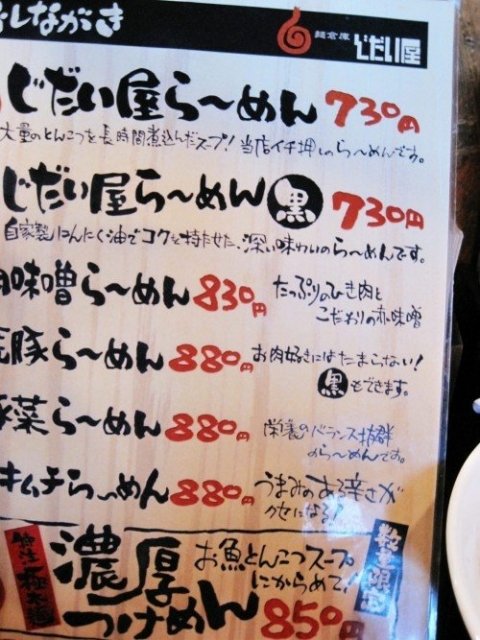 しながき
麺倉庫 じだい屋
じだい屋ら〜めん 730円
大量のとんこつを長時間煮込んだスープ!当店イチ押しのら〜めんです。
じだい屋ら〜めん 黒 730円
自家製にんにく油でコクを持たせた、深い味わいのら〜めんです。
味噌ら〜めん 830円 たっぷりのひき肉と
こだわりの赤味噌
豚ら〜めん 880円 お肉好きにはたまらない!
黒もできます。
菜ら〜めん 880円 栄養のバランス抜群
のら〜めんです。
キムチら〜めん 880円 うまみのある辛さが
クセになる!
特注 極太麺
濃厚つけめん お魚とんこつスープ
にからめて! 850円
数量限定